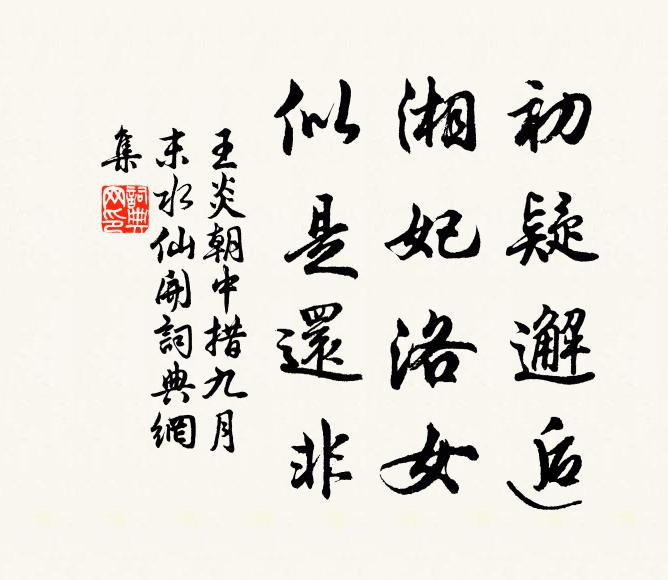 初疑邂逅
湘妃洛女
似是還非
王炎朝中措九月
末水仙開詞典網
集
詞典
网印